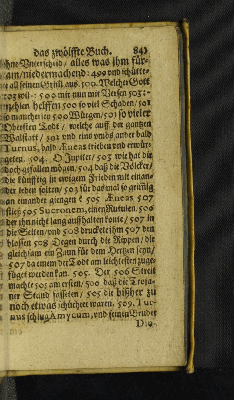 das zwölffte Buch. 841
ohne Unterscheid / alles was ihm für-
kam/niedermachend: 499 und schütte-
te all seinem Grim̃ aus. 500. Welcher Gott
502 wil: 500 mit nun mit Versen 503:
erzehlen helffen 500 so viel Schaden/501
so mancherley 500 Würgen/501 so vieler
Obersten Todt / welche auff der gantzen
Walstatt / 501 und eins umbs ander bald
Turnus, bald Æneas trieben und erwür-
geten. 504. O Jupiter/ 503 wie hat dir
doch gefallen mögen, 504 daß die Völcker/
die künfftig in ewigem Frieden mit einan-
der leben solten/ 503 für das mal so grausig
an einander giengen? 505 Æneas 507
stieß 505 Sucronem, einen Rutuler. 506
der ihn nicht lang auffhalten konte/ 507 in
die Seiten/ und 508 druckete ihm 507 den
blossen 508 Degen durch die Rippen / die
gleichsam ein Zaun für dem Hertzen seyn/
507 da einem der Todt am leichtesten zuge-
füget werden kan. 505. Der 506 Streit
machte 505 am ersten, 506 daß die Troja-
ner Stand fasseten / 505 die bißher zu
noch etwas schüchter waren. 509. Tur-
nus schlug Amycum, und seinen Bruder
Dio-